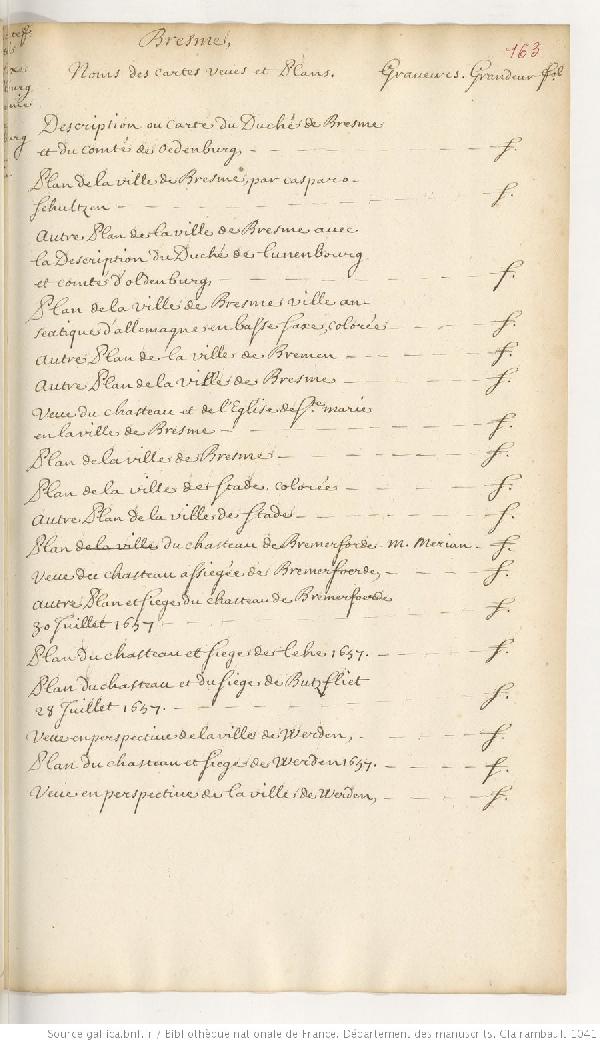 Bresme,
163
Noms des cartes veues et Plans. Graveures. Grandeur fol
Description ou carte du Duché de Bresme
et du comté de oedenburg, f.
Plan de la ville de Bresme, par casparo
schultzen f.
autre Plan de la ville de Bresme avec
la Description du Duché de lunenbourg
et comté d'oldenburg, f.
Plan de la ville de Bresme ville an-
seatique d'allemagne en basse saxe, colorée f.
autre Plan de la ville de Bremen f.
autre Plan de la ville de Bresme f.
Veue du chasteau et de l'Eglise de Ste marie
en la ville de Bresme f.
Plan de la ville de Bresme f.
Plan de la ville de stade, colorée f.
autre Plan de la ville de stade f.
Plan de la ville du chasteau de Bremerforde M. Merian. f.
Veue du chasteau assiegée de Bremerfoerde, f.
autre Plan et siege du chasteau de Bremerfoerde
30 Juillet 1657 f.
Plan du chasteau et siege de lehe 1657. f.
Plan du chasteau et du siége de Butzfliet
28 Juillet 1657. f.
Veue en perspective de la ville de Werden, f.
Plan du chasteau et siege de Werden 1657. f.
Veue en perspective de la ville de Werden, f.
Source gallica.bnf.fr / Bibliothèque nationale de France. Département des manuscrits. Clairambault. 1041